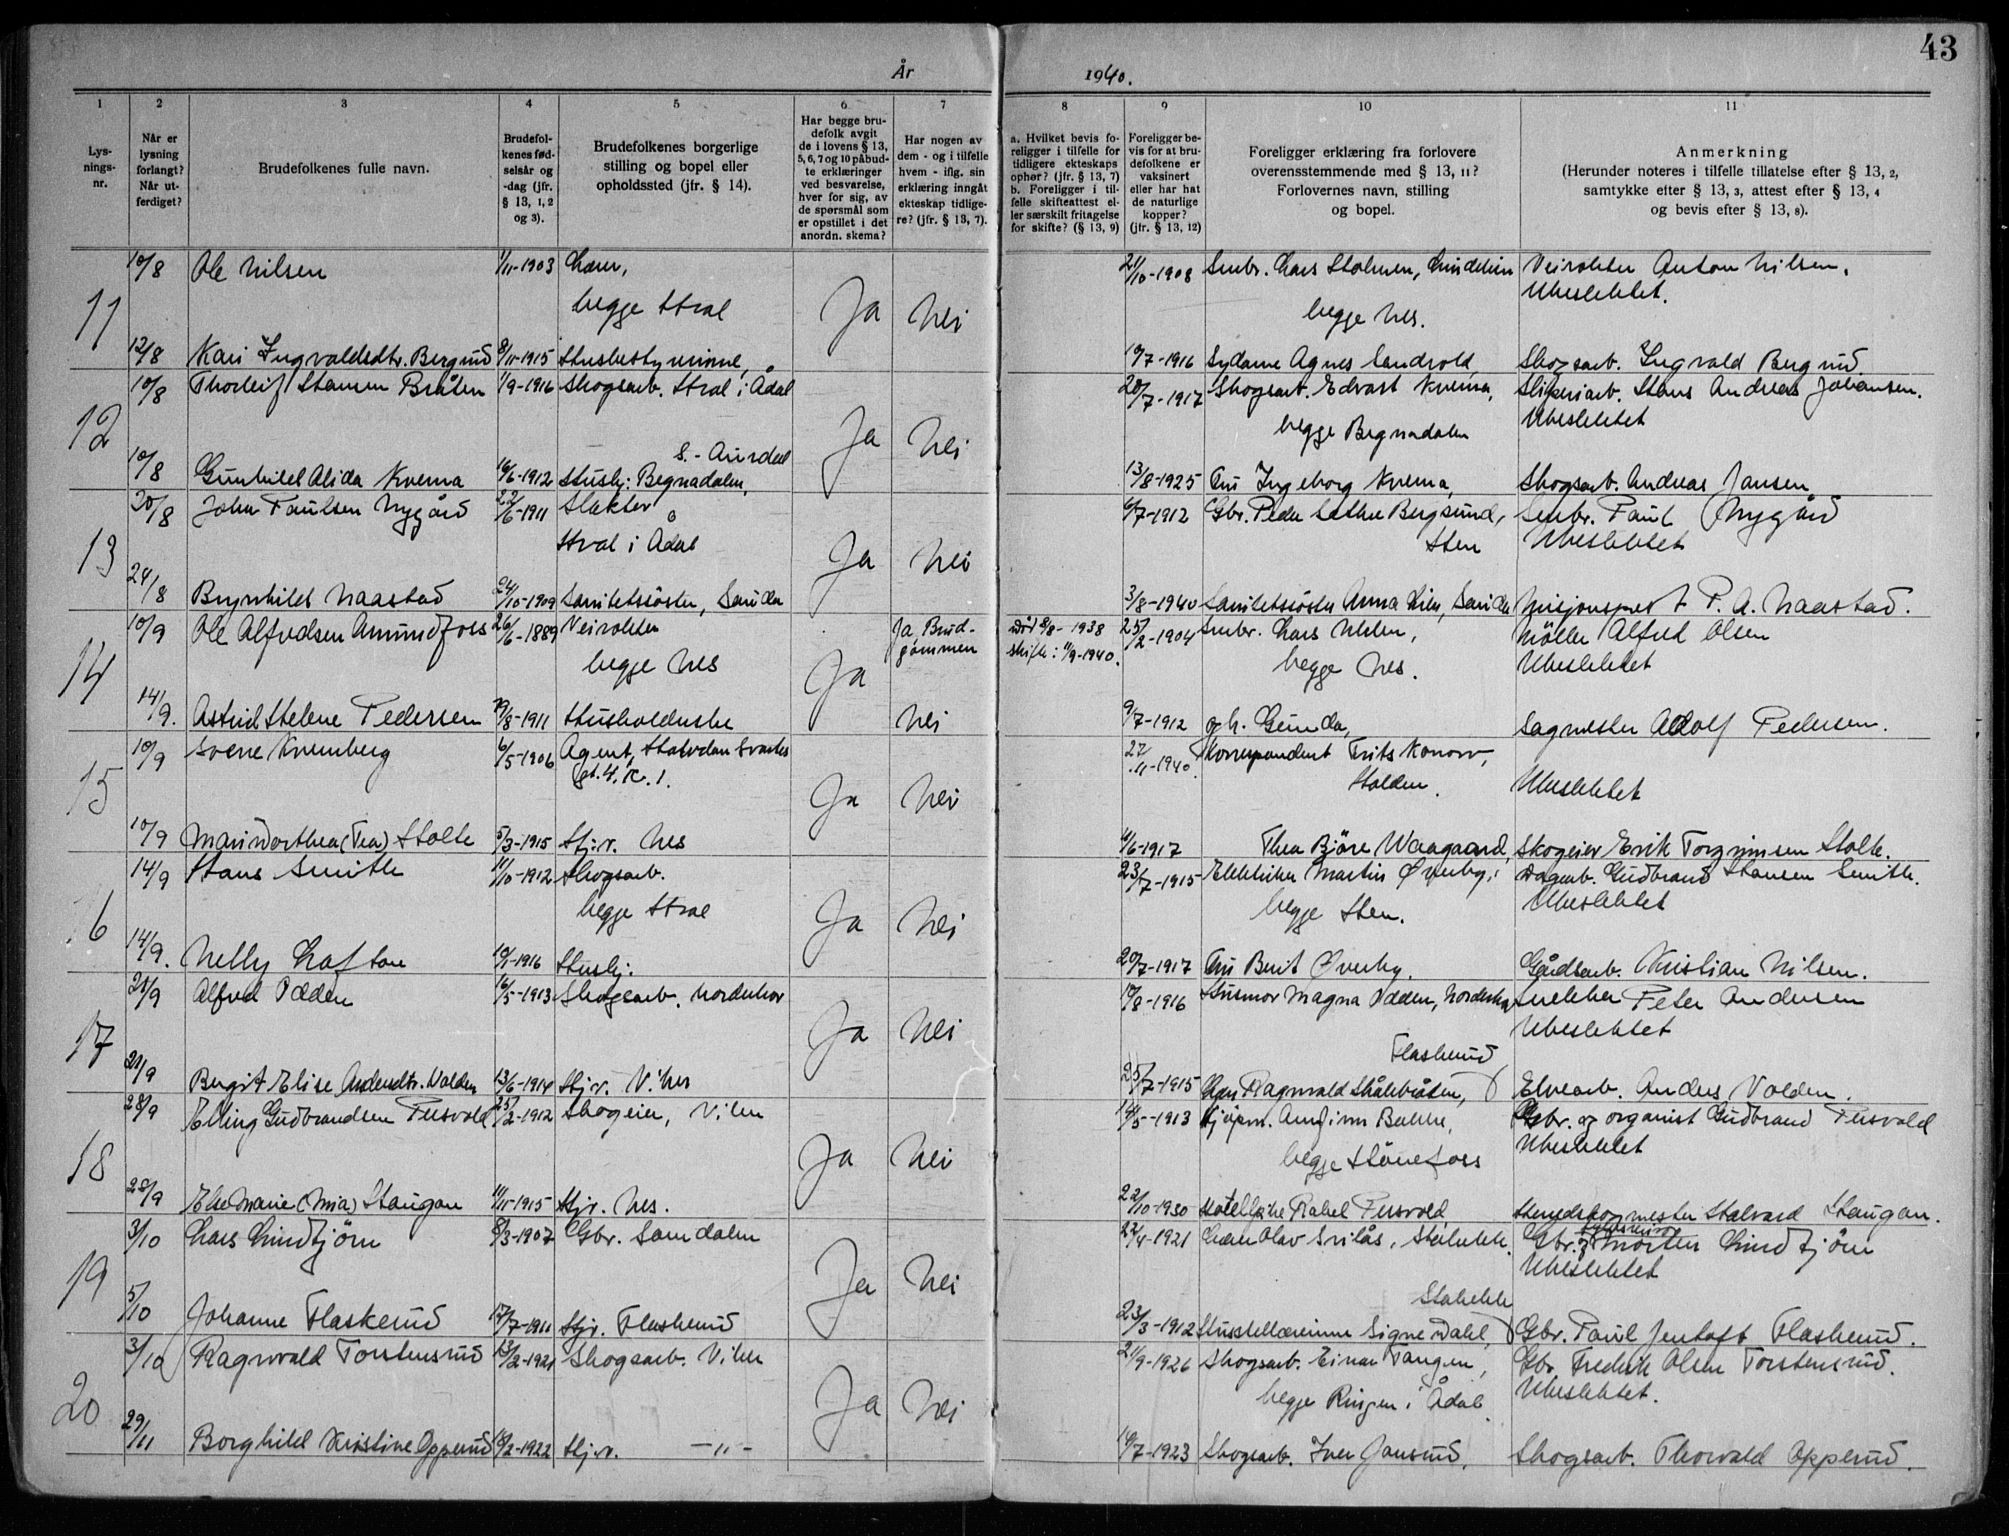 43
År 1940.
1 2 3 4 5 6 7 8 9 10 11
Lys-
nings-
nr.
Når er
lysning
forlangt?
Når ut-
ferdiget?
Brudefolkenes fulle navn.
Brudefol-
kenes fød-
selsår og
-dag (jfr.
§ 13, 1, 2
og 3).
Brudefolkenes borgerlige
stilling og bopel eller
opholdssted (jfr. § 14).
Har begge bru-
defolk avgit
de i lovens § 13,
5, 6, 7 og 10 påbud-
te erklæringer
ved besvarelse,
hver for sig, av
de spørsmål som
er opstillet i det
anordn. skema?
Har nogen av
dem - og i tilfelle
hvem - iflg. sin
erklæring inngåt
ekteskap tidlige-
re? (jfr. § 13, 7).
a. Hvilket bevis fo-
religger i tilfelle for
tidligere ekteskaps
ophør? (jfr. § 13, 7)
b. Foreligger i til-
felle skifteattest el-
ler særskilt fritagelse
for skifte? (§ 13, 9)
Foreligger be-
vis for at bru-
defolkene er
vaksinert
eller har hat
de naturlige
kopper?
(jfr. § 13, 12)
Foreligger erklæring fra forlovere
overensstemmende med § 13, 11?
Forlovernes navn, stilling
og bopel.
Anmerkning
(Herunder noteres i tilfelle tillatelse efter § 13, 2,
samtykke efter § 13, 3, attest efter § 13, 4
og bevis efter § 13, 8).
10/8 Ole Nilsen 1/11-1903 21/10-1908 Smbr. Lars Veivokter Anton Nilsen.
Ubeslektet.
11 begge Hval Ja Nei begge Nes.
12/8 Kari Ingvaldsdtr. Bergsud 8/11-1915 Husbestyrerinne, 10/7-1916 Sydame Agnes Sandvold, Skogsarb. Ingvald Bergsud.
10/8 Thorleif Hansen Bråten 1/9-1916 Skogsarb. Hval i Ådal 20/7-1917 Skogsarb. Edvart Kverna, Sliperiarb. Hans Andreas Johansen.
12 Ja Nei begge Begnadalen Ubeslektet
S.-Aurdal
10/8 Gunhild Alida Kverna 16/6-1912 Husbj: Begnadalen, 13/8-1925 Fru Ingeborg Kverna, Skogsarb. Andreas Jansen
20/8 John Paulsen Nygård 22/6-1911 Slakter 6/7-1912 Gbr. Peder Bergsund, Smbr. Paul Nygård
13 Hval i Ådal Ja Nei Sten Ubeslektet
24/8 Brynhild Naastad 24/10-1909 Sanitetssöster, Sauda 3/8-1940 Sanitetssöster Anna Lien, Sauda Misjonsprest P. A. Naastad.
10/9 Ole Alfredsen Amundfors 26/6-1889 Veivokter Ja, Brud-
gommen Död 8/8-1938
skifte: 11/9-1940. 25/2-1904 Smbr. Lars Möller Alfred Olsen
14 begge Nes Ja begge Nes. Ubeslektet
14/9. Astrid Helene Pedersen 19/8-1911 Husholderske Nei 9/7-1912 og h. Gunda, Sagmester Adolf Pedersen.
10/9 Sverre Kvernberg 6/5-1906 Agent, Halvdan Svartes
gt. 4, K. 1. 27/11-1940. Korrespondent Frits Konow,
15 Ja Nei Halden. Ubeslektet
10/9 Mari Dorthea (Tea) Holte 5/3-1915 Hjv. Nes 4/6-1917 Thea Björe Waagaard, Skogeier Erik Torgrimsen Holte.
14/9 Hans Smith 11/10-1912 Skogsarb. 23/7-1915 Elektriker Martin Øverby, Dagarb. Gudbrand Hansen Smith.
16 begge Hval Ja Nei begge Sten. Ubeslektet
14/9. Nelly Loftan 10/1-1916 Husbj: 20/7-1917 Fru Berit Øverby. Gårdsarb. Kristian Nilsen.
21/9 Alfred Odden 16/5-1913 Skogsarb. Norderhov 17/8-1916 Husmor Magna Odden, Norderhov Snekker Peter Andersen
17 Ja Nei Ubeslektet
Flaskerud
21/9 Bergit Elise Andersdtr. Volden 13/6-1914 Hjv. Viker 25/7-1915 Ragnvald Skålebråten, Elvearb. Anders Volden.
28/9 Elling Gudbrandsen Tursvold 25/2-1912 Skogeier, Viker 14/5-1913 Arnfinn Bakke, Gbr. og organist Gudbrand Tursvold
18 Ja Nei begge Hönefoss Ubeslektet
28/9 Else Marie (Mia) Haugan 11/11-1915 Hjv. Nes. 22/10-1930 Rakel Tursvold Herredskogmester Halvard Haugan.
3/10 Lars Lindtjörn 8/3-1907 Gbr. Somdalen 22/4-1921 Olav Gbr. Morten Lindtjörn
19 Ja Nei Ubeslektet
5/10 Johanne Flaskerud 17/7-1911 Hjv. Flaskerud 23/3-1912 Husstellærerinne Signe Dahl, Gbr. Paul Jentoft Flaskerud.
3/10 Ragnvald Torstensrud 13/2-1921 Skogsarb. Viker 21/9-1926 Skogsarb. Einar Tangen, Gbr. Fredrik Olsen Torstensrud.
20 Ja Nei begge Ringen i Ådal. Ubeslektet.
29/11 Borghild Kristine Opperud 18/2-1922 Hjv. -"- 14/7-1923 Skogsarb. Iver Jansrud, Skogsarb. Thorvald Opperud.